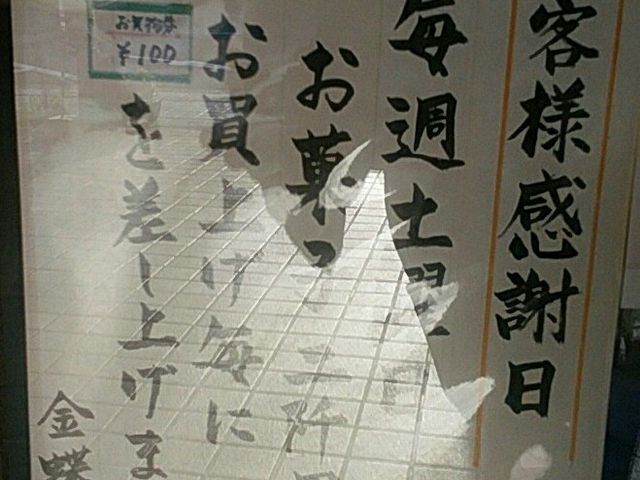 客様感謝日
毎週土曜
お菓子二
お買上げ毎に
お買物券
¥100
を差し上げま
金蝶